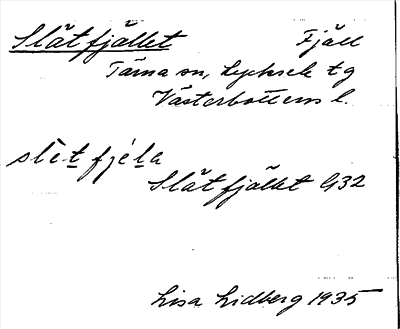 Slätfjället Fjäll
Tärna sn, Lycksele tg
Västerbottens l.
slètfjèla
Slätfjället G32
Lisa Lidberg 1935